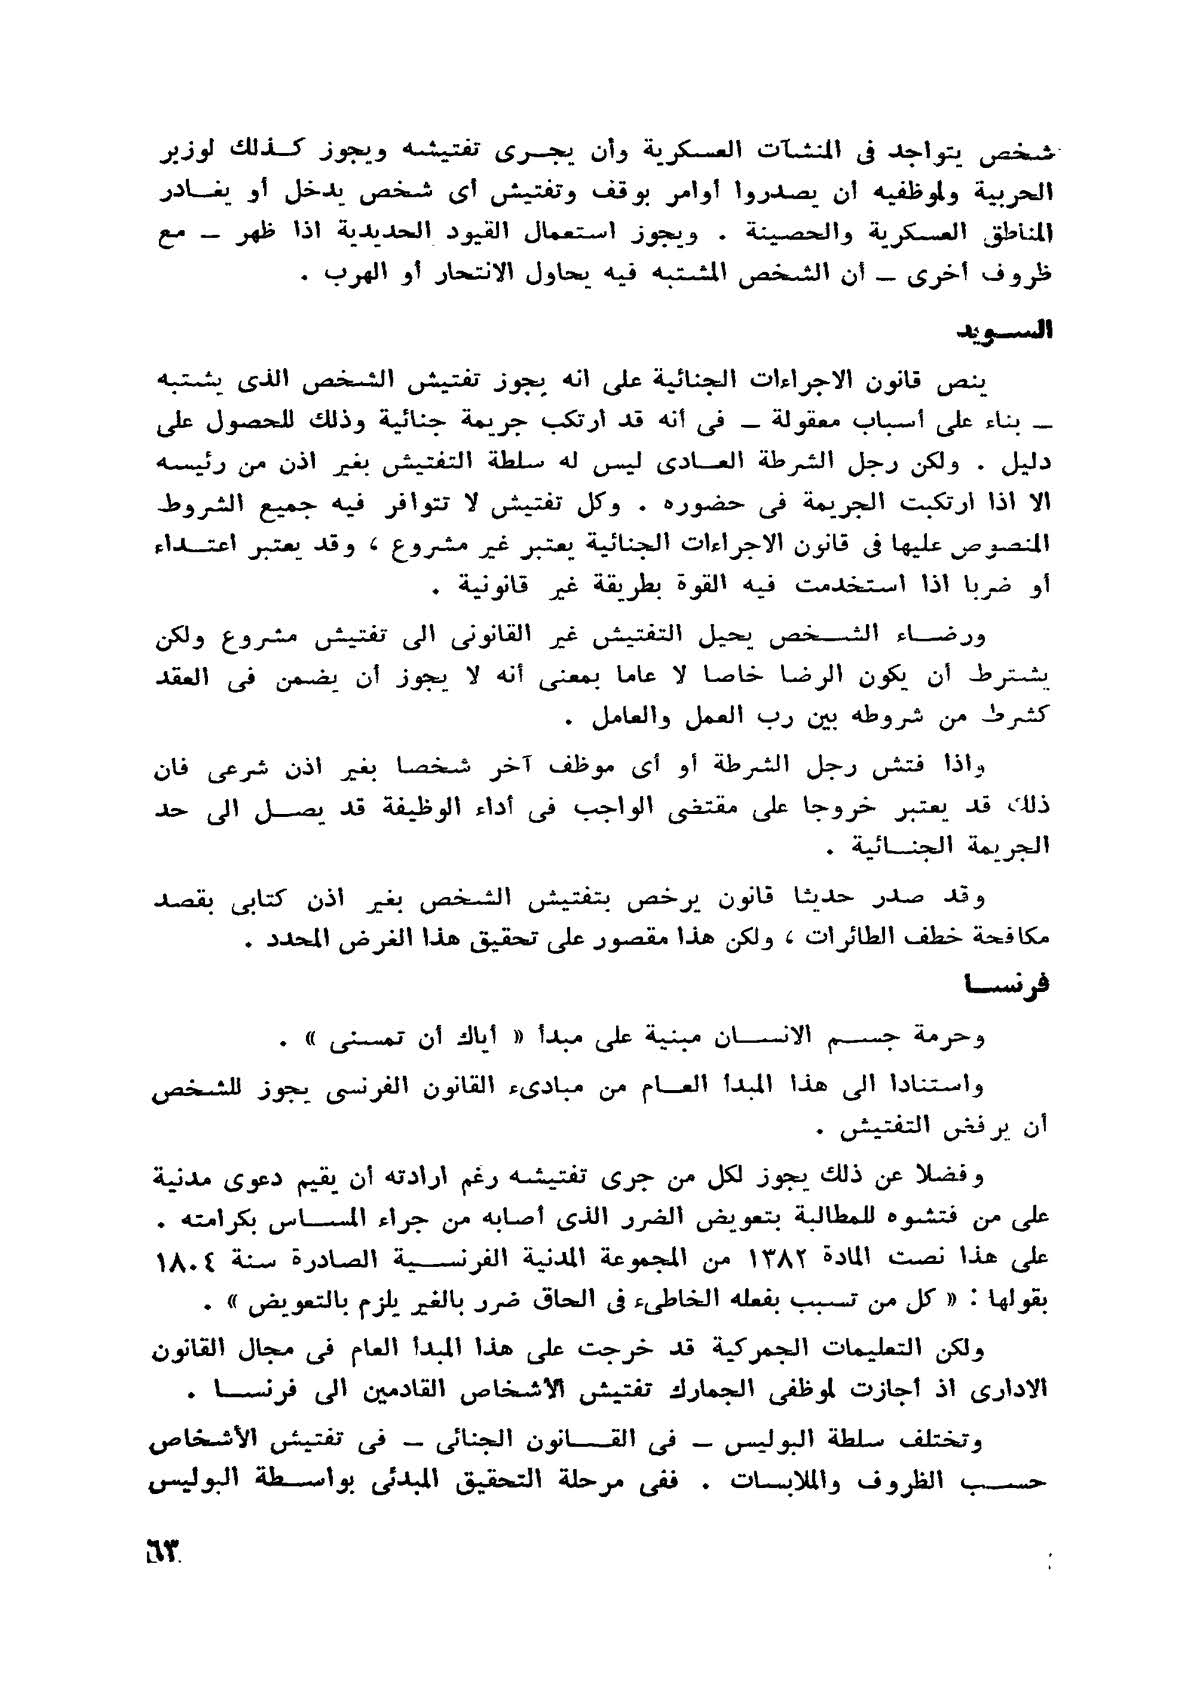 شخص يتواجد فى المنشآت العسكرية وأن يجرى تفتيشه ويجوز كذلك لوزير
الحربية ولموظفيه أن يصدروا أوامر بوقف وتفتيش أى شخص يدخل أو يغادر
المناطق العسكرية والحصينة . ويجوز استعمال القيود الحديدية اذا ظهر – مع
ظروف أخرى – أن الشخص المشتبه فيه يحاول الانتحار أو الهرب .
السويد
ينص قانون الاجراءات الجنائية على انه يجوز تفتيش الشخص الذى يشتبه
– بناء على أسباب معقولة – فى أنه قد ارتكب جريمة جنائية وذلك للحصول على
دليل . ولكن رجل الشرطة العادى ليس له سلطة التفتيش بغير اذن من رئيسه
الا اذا ارتكبت الجريمة فى حضوره . وكل تفتيش لا تتوافر فيه جميع الشروط
المنصوص عليها فى قانون الاجراءات الجنائية يعتبر غير مشروع ، وقد يعتبر اعتداء
أو ضربا اذا استخدمت فيه القوة بطريقة غير قانونية .
ورضاء الشخص يحيل التفتيش غير القانونى الى تفتيش مشروع ولكن
يشترط أن يكون الرضا خاصا لا عاما بمعنى أنه لا يجوز أن يضمن فى العقد
كشرط من شروطه بين رب العمل والعامل .
واذا فتش رجل الشرطة أو أى موظف آخر شخصا بغير اذن شرعى فان
ذلك قد يعتبر خروجا على مقتضى الواجب فى أداء الوظيفة قد يصل الى حد
الجريمة الجنائية .
وقد صدر حديثا قانون يرخص بتفتيش الشخص بغير اذن كتابى بقصد
مكافحة خطف الطائرات ، ولكن هذا مقصور على تحقيق هذا الغرض المحدد .
فرنسا
وحرمة جسم الانسان مبنية على مبدأ « أياك أن تمسنى » .
واستنادا الى هذا المبدأ العام من مبادىء القانون الفرنسى يجوز للشخص
أن يرفض التفتيش .
وفضلا عن ذلك يجوز لكل من جرى تفتيشه رغم ارادته أن يقيم دعوى مدنية
على من فتشوه للمطالبة بتعويض الضرر الذى أصابه من جراء المساس بكرامته .
على هذا نصت المادة ١٣٨٢ من المجموعة المدنية الفرنسية الصادرة سنة ١٨٠٤
بقولها : « كل من تسبب بفعله الخاطىء فى الحاق ضرر بالغير يلزم بالتعويض » .
ولكن التعليمات الجمركية قد خرجت على هذا المبدأ العام فى مجال القانون
الادارى اذ أجازت لموظفى الجمارك تفتيش الأشخاص القادمين الى فرنسا .
وتختلف سلطة البوليس – فى القانون الجنائى – فى تفتيش الأشخاص
حسب الظروف والملابسات . ففى مرحلة التحقيق المبدئى بواسطة البوليس
٦٣